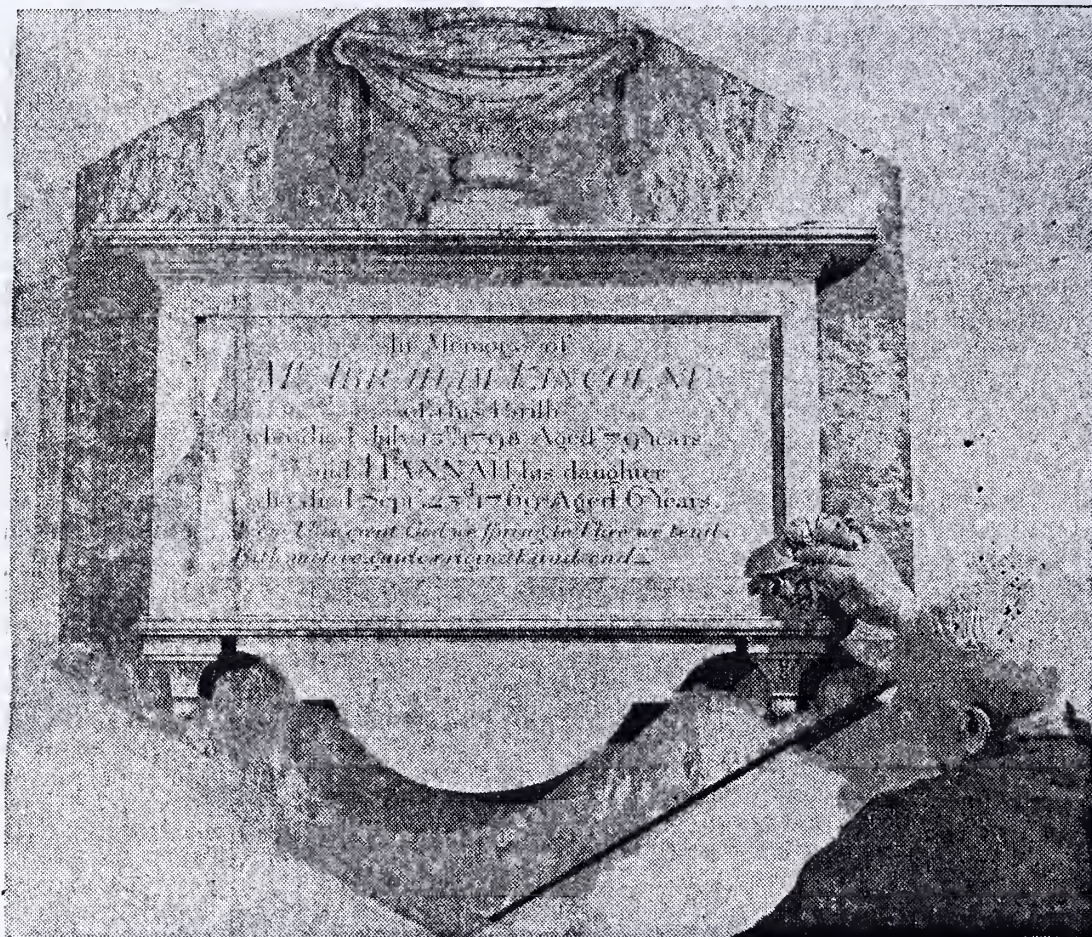 In Memory of
Mr.
of this Parish
who died July 15th 1798 Aged 79 Years
and HANNAH his daughter
who died Sept. 23d 1769 Aged 6 Years.
From Thee great God we spring, to Thee we tend,
Path, motive, guide, original and end.